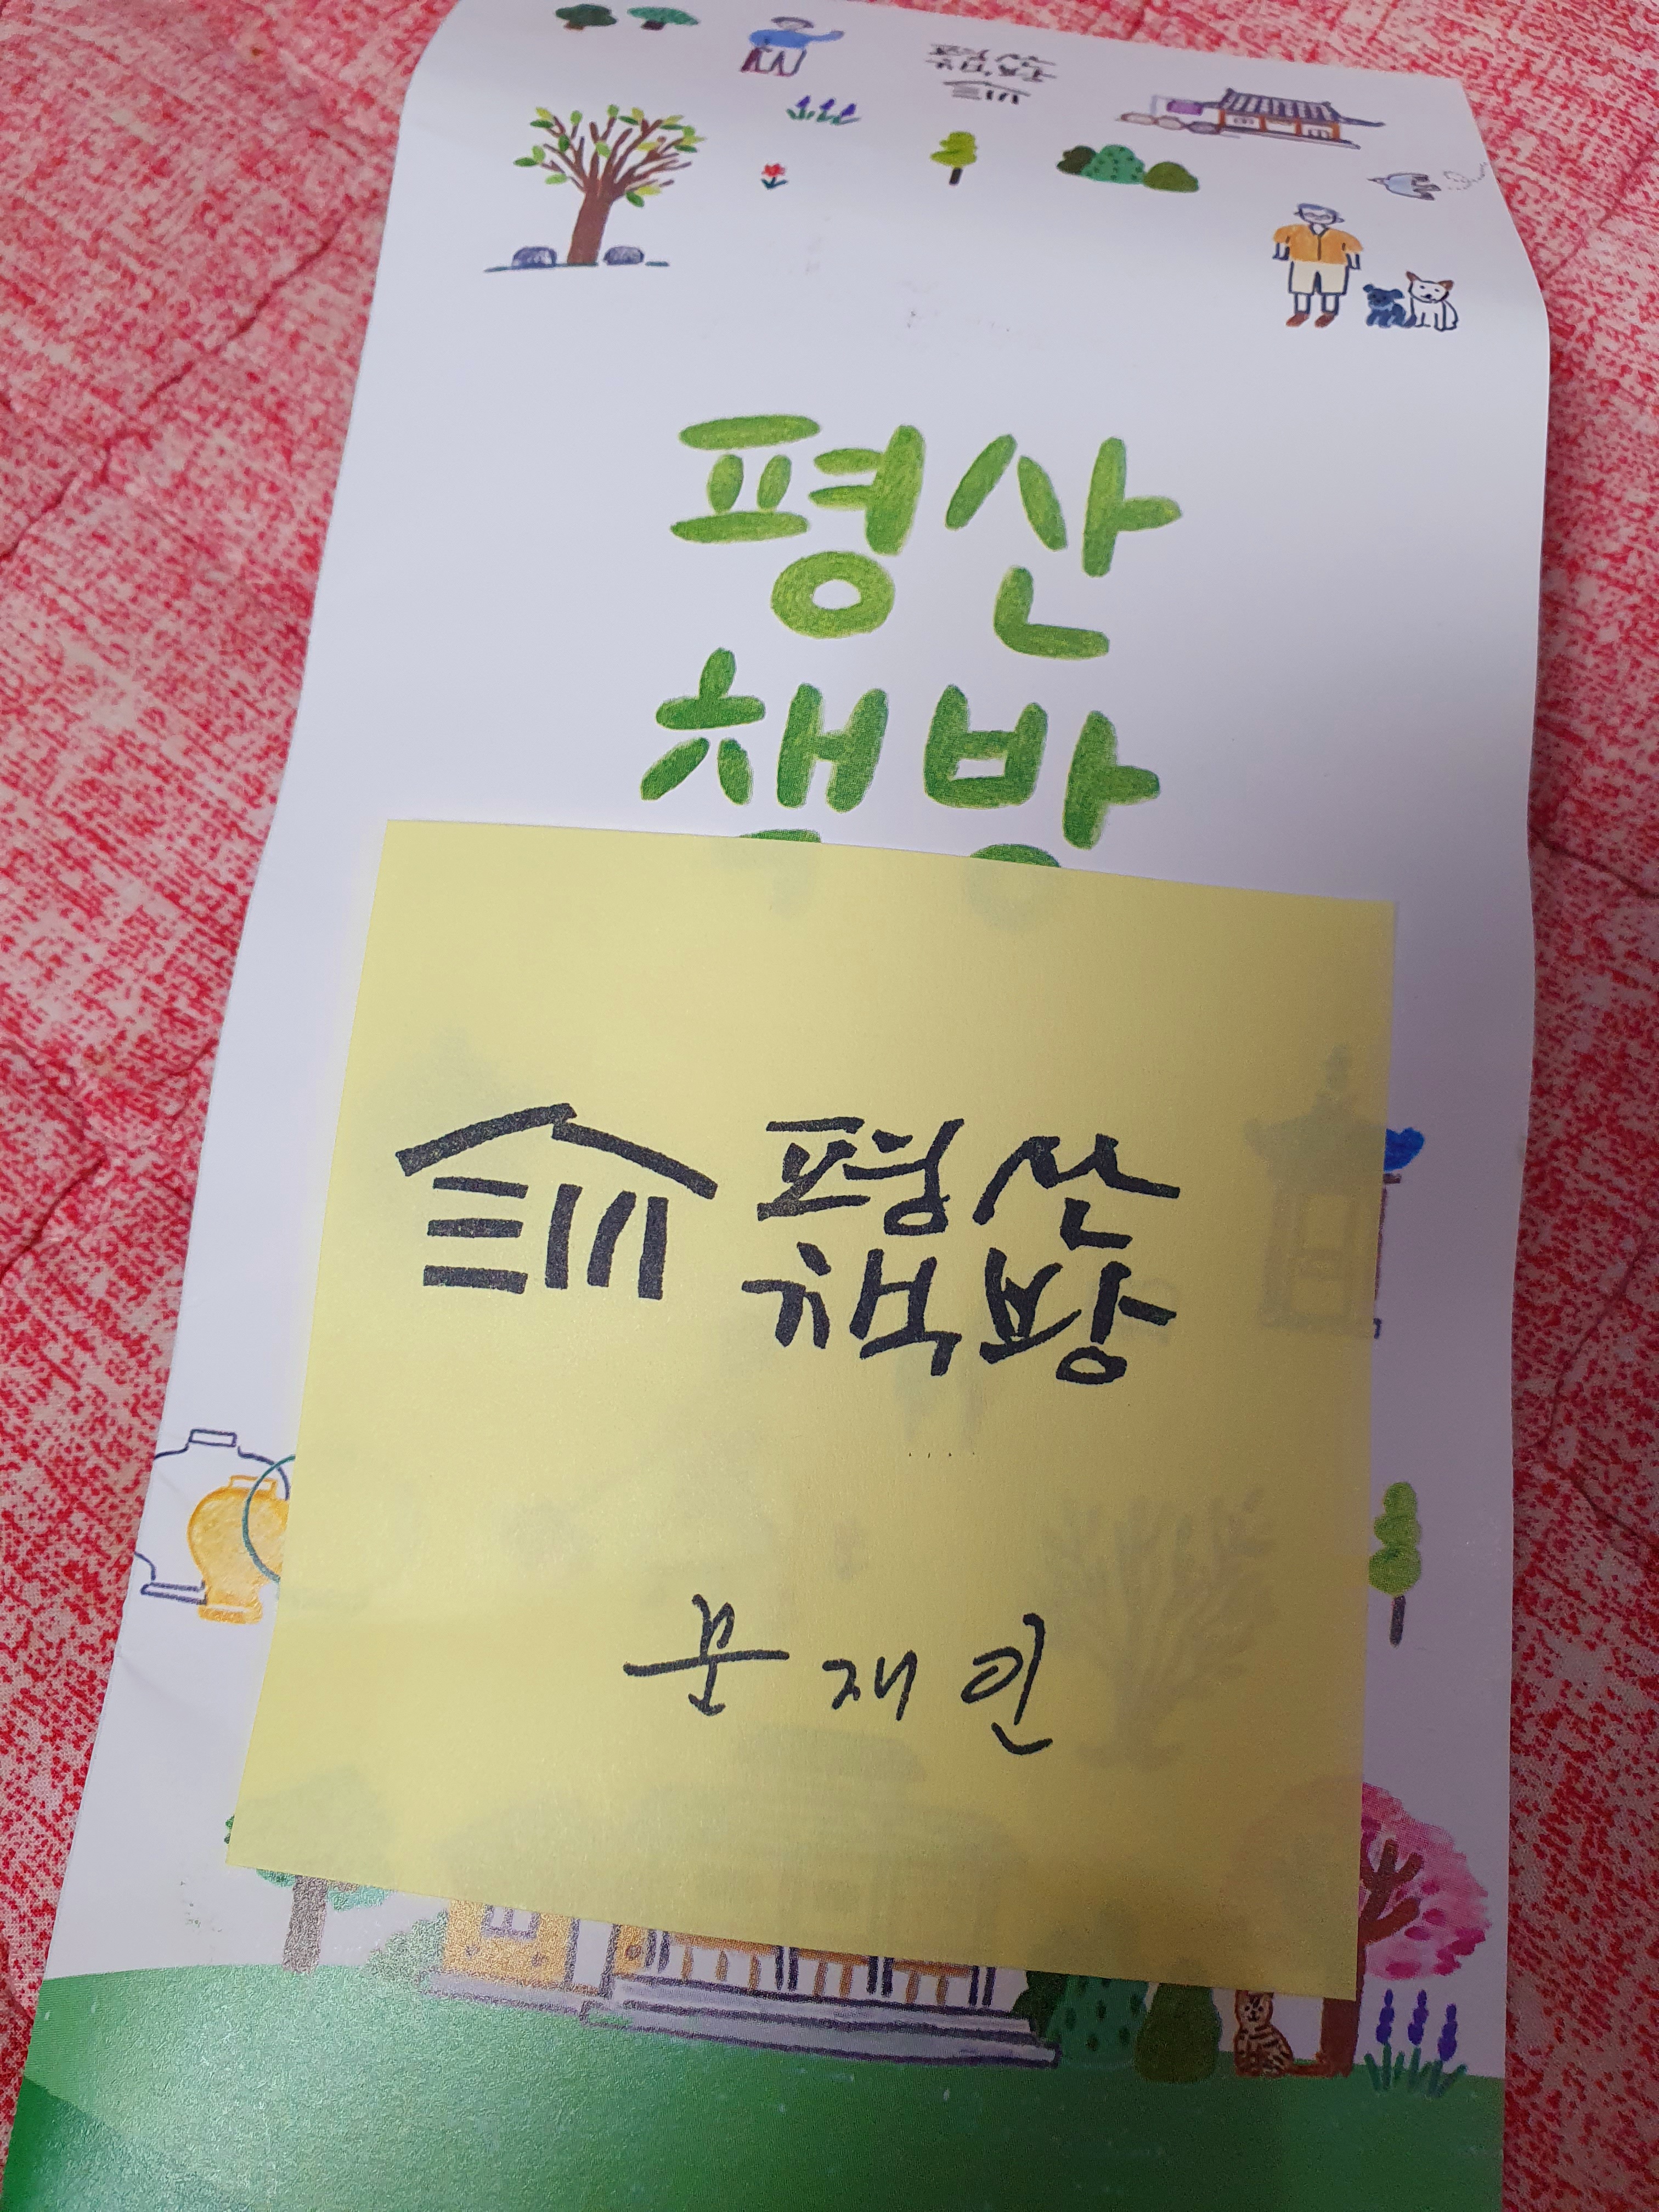 평산
책방
평산
책방
평산
책방
문재인